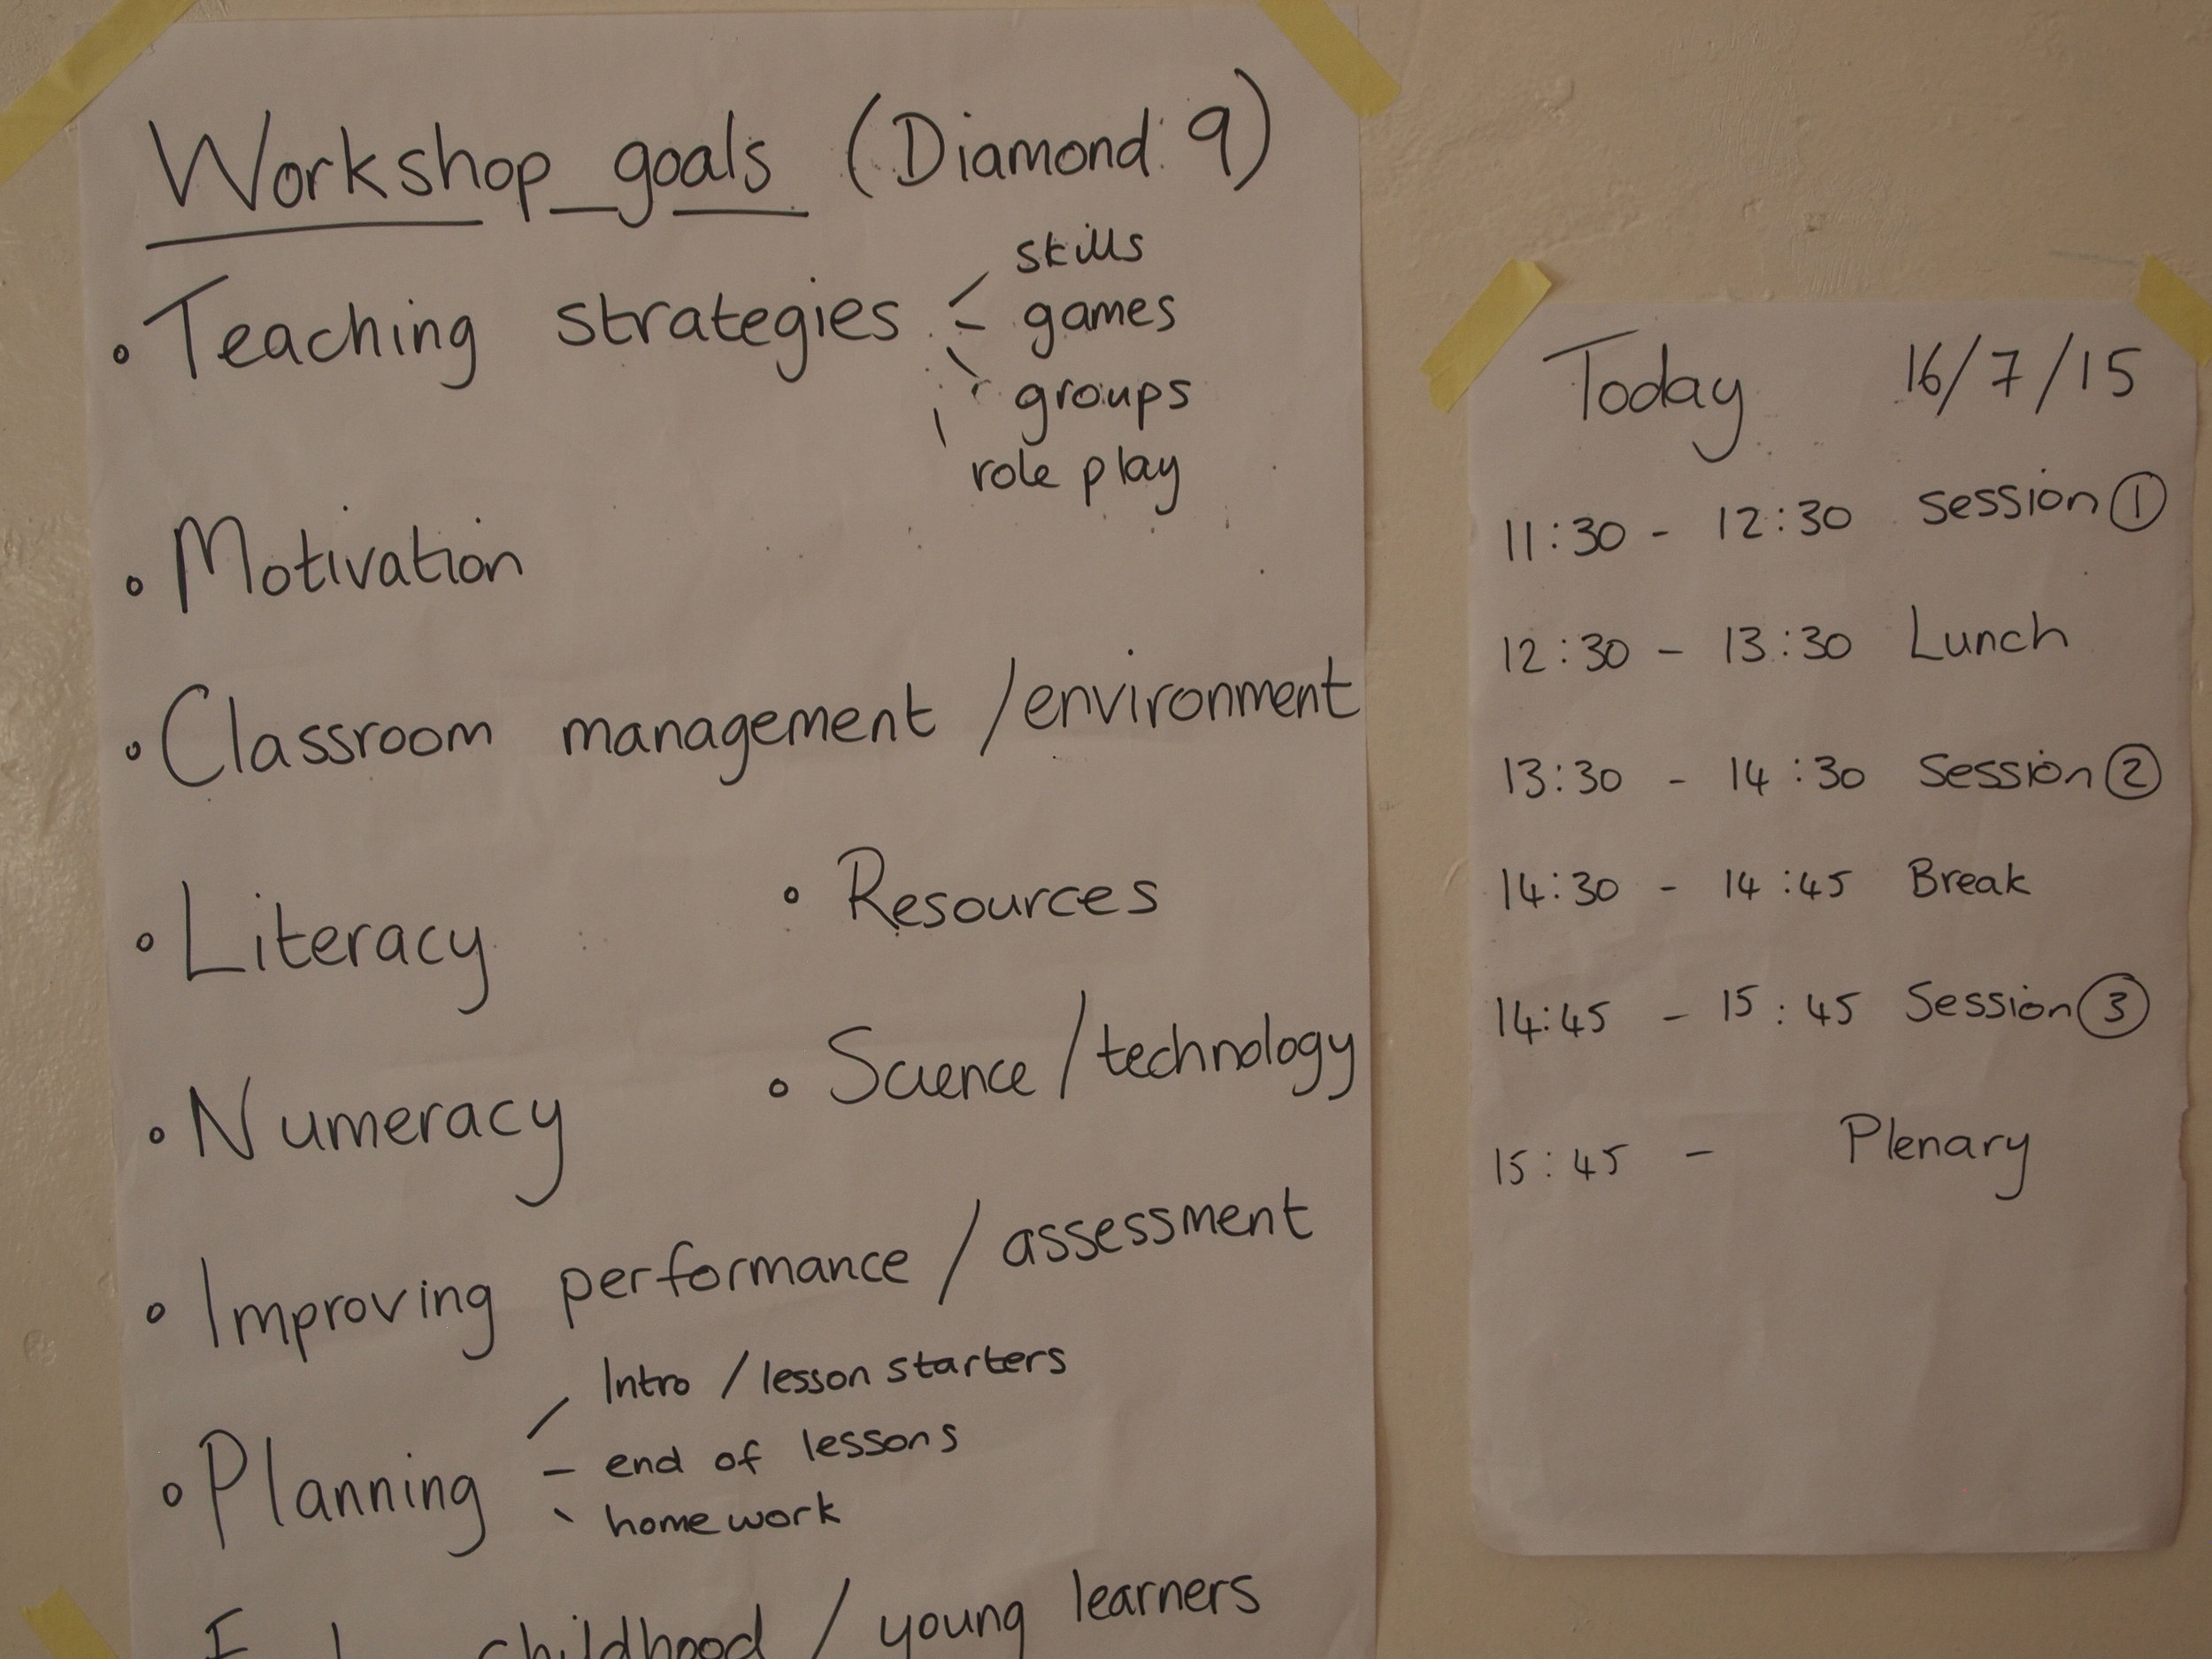 Workshop goals (Diamond 9)
• Teaching strategies
skills
games
groups
role play
• Motivation
• Classroom management / environment
• Literacy
• Resources
• Numeracy
• Science / technology
• Improving performance / assessment
• Planning
Intro / lesson starters
end of lessons
homework
childhood / young learners
Today 16/7/15
11:30 - 12:30 session ①
12:30 - 13:30 Lunch
13:30 - 14:30 Session ②
14:30 - 14:45 Break
14:45 - 15:45 Session ③
15:45 - Plenary